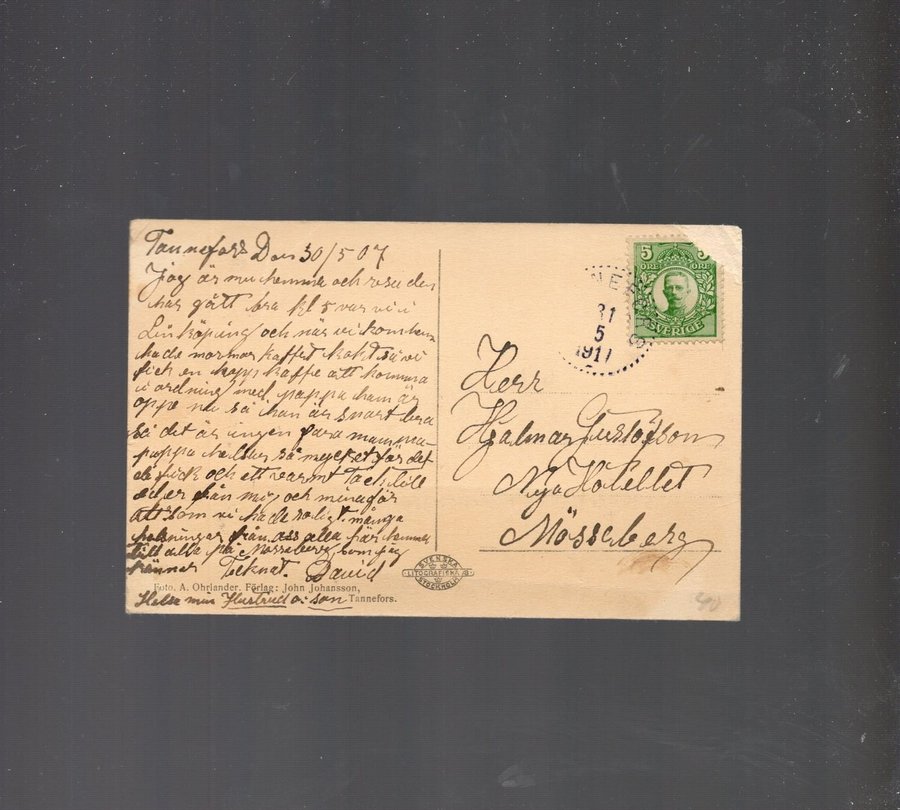 Tannefors Den 30/5 07
Jag är nu hemma och resa den
har gått bra kl 5 var vi i
Linköping och när vi kom hem
hade mormor kaffet kokt så vi
fick en kopp kaffe att komma
i ordning med pappa han är
oppe nu så han är snart bra
så det är ingen fara mamma
pappa hälsar så mycket för det
de fick och ett varmt Tack till
eder från mig och
att som vi hade roligt. många
hälsningar från oss alla här hemma
till alla på Mösseberg som jag
känner Teknat. David
Helsa min Hustrud o. son
Foto. A. Ohrlander. Förlag: John Johansson,
Tannefors.
SVENSKA
LITOGRAFISKA AB
STOCKHOLM
5 5
ÖRE ÖRE
SVERIGE
31
5
1911
Herr
Hjalmar Gustöfson
Nya Hotellet
Mösseberg
40